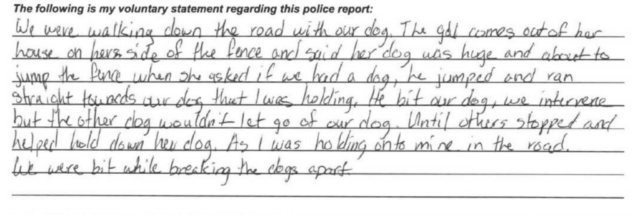 The following is my voluntary statement regarding this police report:
We were walking down the road with our dog. The gal comes out of her
house on hers side of the fence and said her dog was huge and about to
jump the fence when she asked if we had a dog, he jumped and ran
straight towards our dog that I was holding. He bit our dog, we intervene
but the other dog wouldn't let go of our dog. Until others stopped and
helped hold down her dog. As I was holding onto mine in the road.
We were bit while breaking the dogs apart